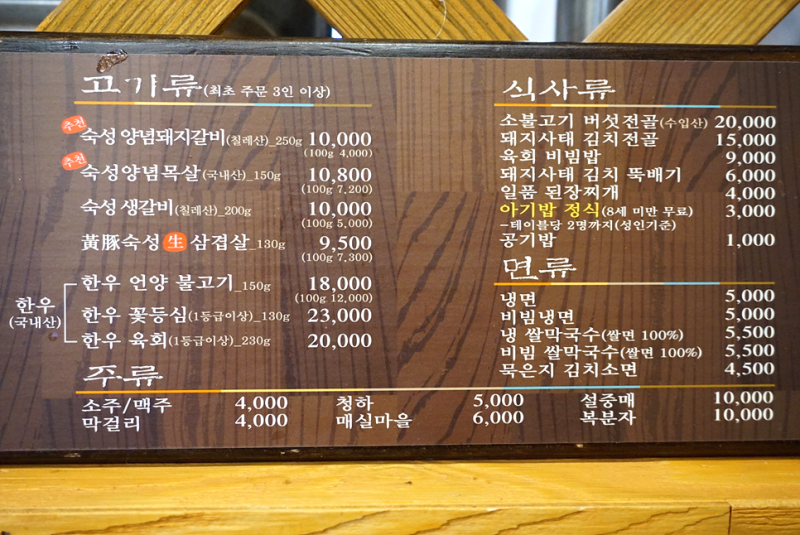 고기류(최초 주문 3인 이상)
추천 숙성 양념돼지갈비(칠레산)_250g 10,000
(100g 4,000)
추천 숙성양념목살(국내산)_150g 10,800
(100g 7,200)
숙성 생갈비(칠레산)_200g 10,000
(100g 5,000)
黃豚숙성 生 삼겹살_130g 9,500
(100g 7,300)
한우 (국내산)
한우 언양 불고기_150g 18,000
(100g 12,000)
한우 꽃등심(1등급이상)_130g 23,000
한우 육회(1등급이상)_230g 20,000
식사류
소불고기 버섯전골(수입산) 20,000
돼지사태 김치전골 15,000
육회 비빔밥 9,000
돼지사태 김치 뚝배기 6,000
일품 된장찌개 4,000
아기밥 정식(8세 미만 무료) 3,000
-테이블당 2명까지(성인기준)
공기밥 1,000
면류
냉면 5,000
비빔냉면 5,000
냉 쌀막국수(쌀면 100%) 5,500
비빔 쌀막국수(쌀면 100%) 5,500
묵은지 김치소면 4,500
주류
소주/맥주 4,000 청하 5,000 설중매 10,000
막걸리 4,000 매실마을 6,000 복분자 10,000